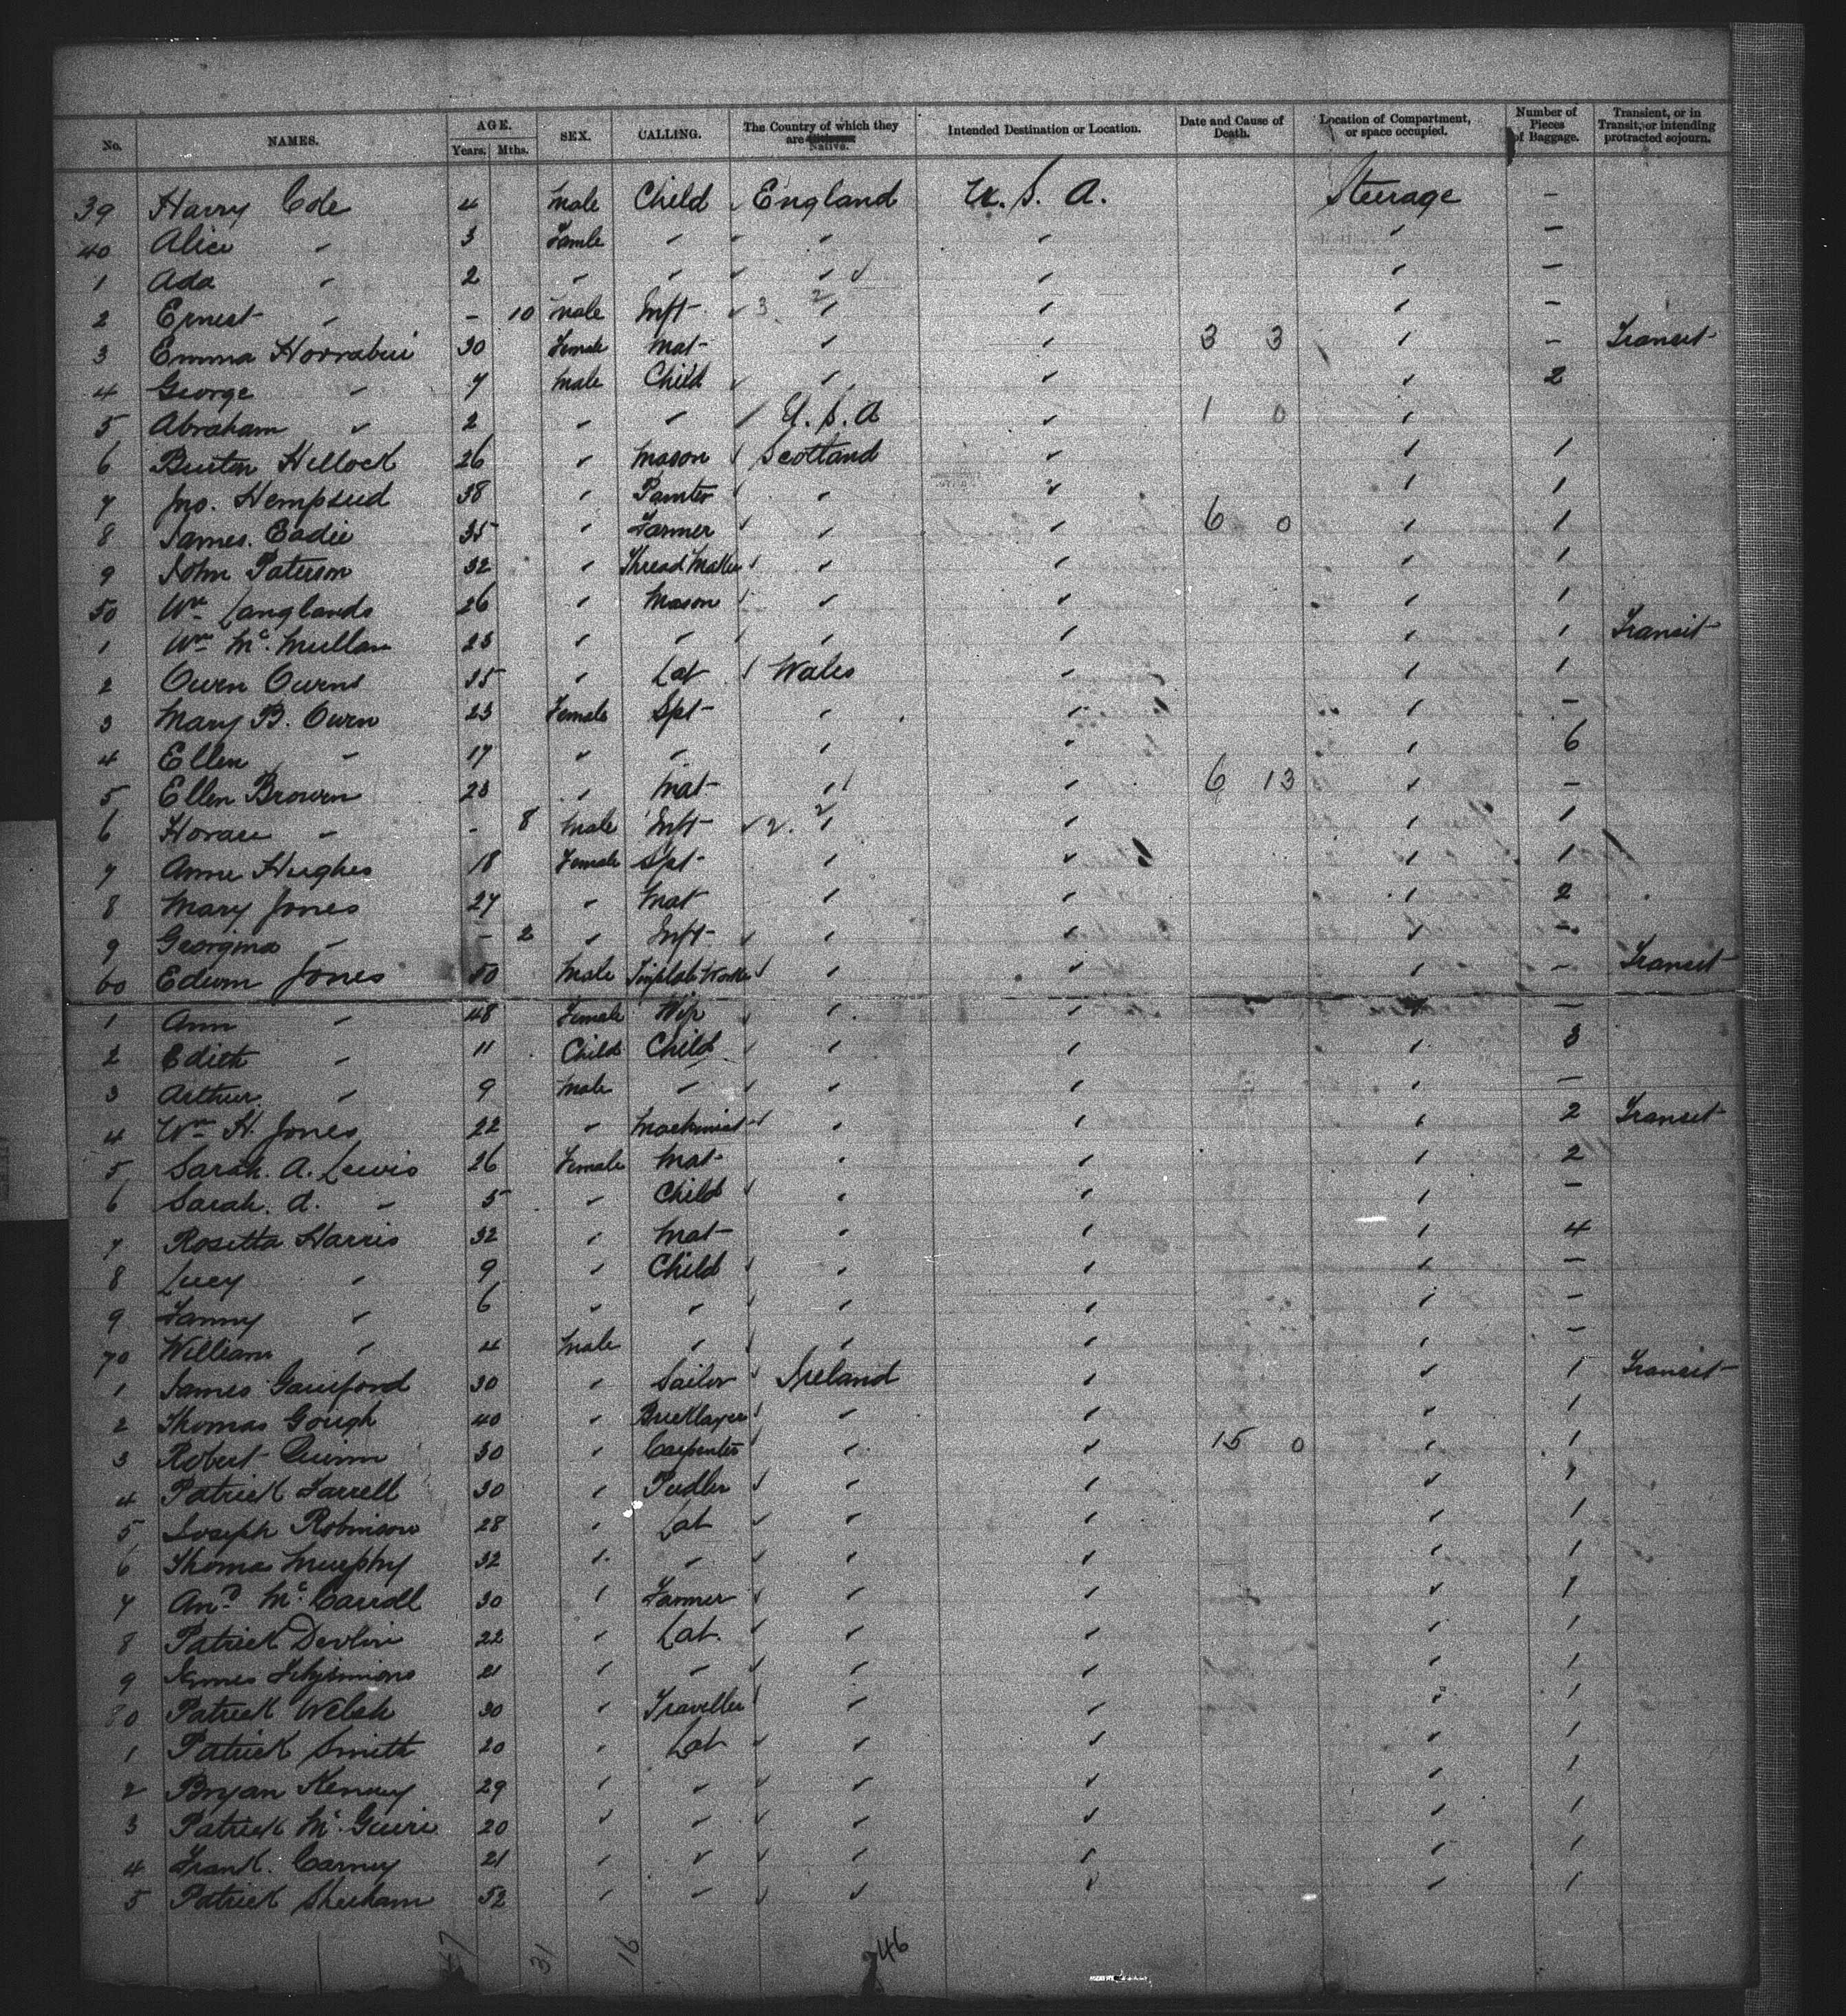 No. NAMES. AGE. Years. Mths. SEX. CALLING. The Country of which they are Native. Intended Destination or Location. Date and Cause of Death. Location of Compartment, or space occupied. Number of Pieces of Baggage. Transient, or in Transit, or intending protracted sojourn.
39 Harry Cole 4 Male Child England U.S.A. Steerage -
40 Alice " 3 Famle " " " " -
1 Ada " 2 " " " " " -
2 Ernest " - 10 Male Inft " " " -
3 Emma Horrabin 30 Female Mat " " 3 3 " - Transit
4 George " 7 Male Child " " " 2
5 Abraham " 2 " " U.S.A " 1 0 "
6 Burton Hillock 26 " Mason Scotland " " 1
7 Jno. Hempseed 38 " Painter " " " 1
8 James Eadie 35 " Farmer " " 6 0 " 1
9 John Paterson 32 " Thread Maker " " " 1
50 Wm Langlands 26 " Mason " " " 1
1 Wm McMullan 23 " " " " " 1 Transit
2 Owen Owens 35 " Lab Wales " " 1
3 Mary B. Owen 23 Female Spt " " " -
4 Ellen " 17 " " " " " 6
5 Ellen Brown 23 " Mat " " 6 13 " -
6 Horace " - 8 Male Inft 2 " " " 1
7 Annie Hughes 18 Female Spt " " " 1
8 Mary Jones 27 " Mat " " " 2
9 Georgina " - 2 " Inft " " " -
60 Edwin Jones 50 Male Tinplate Worker " " " - Transit
1 Ann " 48 Female Wife " " " -
2 Edith " 11 Child Child " " " 3
3 Arthur " 9 Male " " " " -
4 Wm H. Jones 22 " Machinist " " " 2 Transit
5 Sarah. A. Lewis 26 Female Mat " " " 2
6 Sarah. A. " 5 " Child " " " -
7 Rosetta Harris 32 " Mat " " " 4
8 Lucy " 9 " Child " " " -
9 Fanny " 6 " " " " " -
70 William " 4 Male " " " " -
1 James 30 " Sailor Ireland " " 1 Transit
2 Thomas Gough 40 " Bricklayer " " " 1
3 Robert Quinn 30 " Carpenter " " 15 0 " 1
4 Patrick Farrell 30 " Pedler " " " 1
5 Joseph Robinson 28 " Lab " " " 1
6 Thoma Murphy 32 " " " " " 1
7 And McCarroll 30 " Farmer " " " 1
8 Patrick Devlin 22 " Lab. " " " 1
9 James Fitzsimons 21 " " " " " 1
80 Patrick Welsh 30 " Traveller " " " 1
1 Patrick Smith 20 " Lab " " " 1
2 Bryan Kenney 29 " " " " " 1
3 Patrick McGuire 20 " " " " " 1
4 Frank. Carney 21 " " " " " 1
5 Patrick Sheehan 52 " " " " " 1
31 16 46